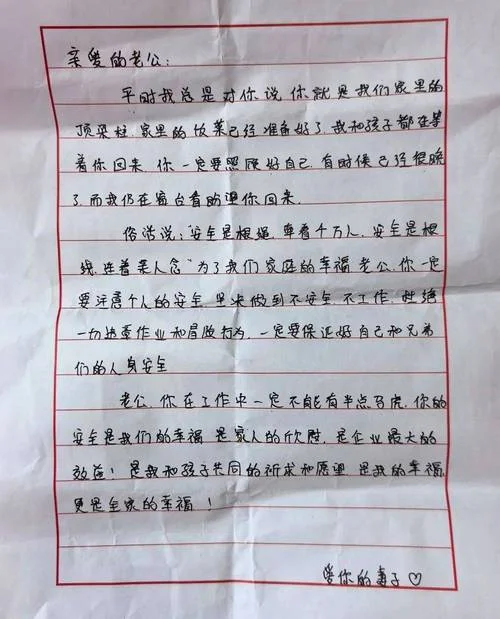 亲爱的老公:
平时我总是对你说你就是我们家里的
顶梁柱 家里的饭菜已经准备好了.我和孩子都在等
着你回来.你一定要照顾好自己.有时候已经很晚
了.而我仍在窗台看盼望你回来.
俗话说:"安全是根绳.牵着千万人.安全是根
线.连着亲人念"为了我们家庭的幸福 老公.你一定
要注意个人的安全.坚决做到不安全 不工作.杜绝
一切违章作业和冒险行为.一定要保证好自己和兄弟
们的人身安全
老公.你在工作中一定不能有半点马虎.你的
安全是我们的幸福 是家人的欣慰.是企业最大的
效益!是我和孩子共同的祈求和愿望.是我的幸福
更是全家的幸福!
爱你的妻子♡